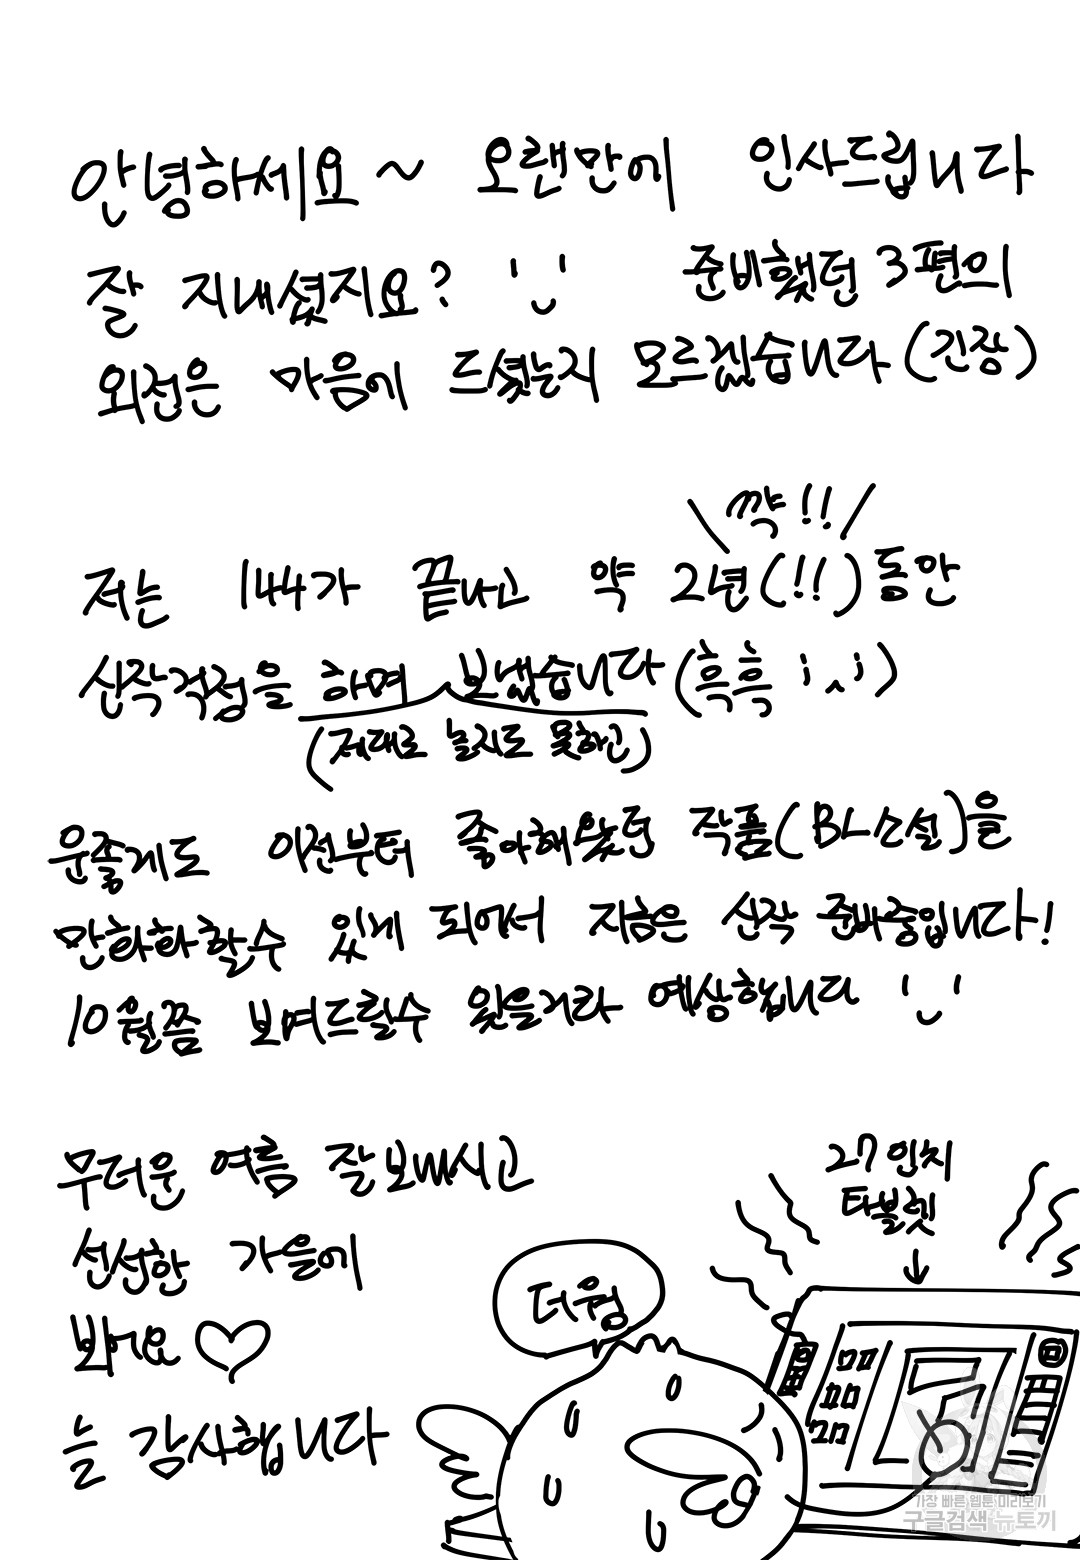 안녕하세요~ 오랜만에 인사드립니다
잘 지내셨지요? 준비했던 3편의
외전은 마음에 드셨는지 모르겠습니다 (긴장)
꺅!!
저는 144가 끝나고 약 2년(!!)동안
신작걱정을 하며 보냈습니다(흑흑 ;ㅅ;)
(제대로 놀지도 못하고)
운좋게도 이전부터 좋아해왔던 작품(BL소설)을
만화화할수 있게 되어서 지금은 신작 준비중입니다!
10월쯤 보여드릴수 있을거라 예상합니다
무더운 여름 잘 보내시고
선선한 가을에
봐어요♡
늘 감사합니다
27인치
타블렛
더웡
가장 빠른 웹툰 미리보기
구글검색 뉴토끼